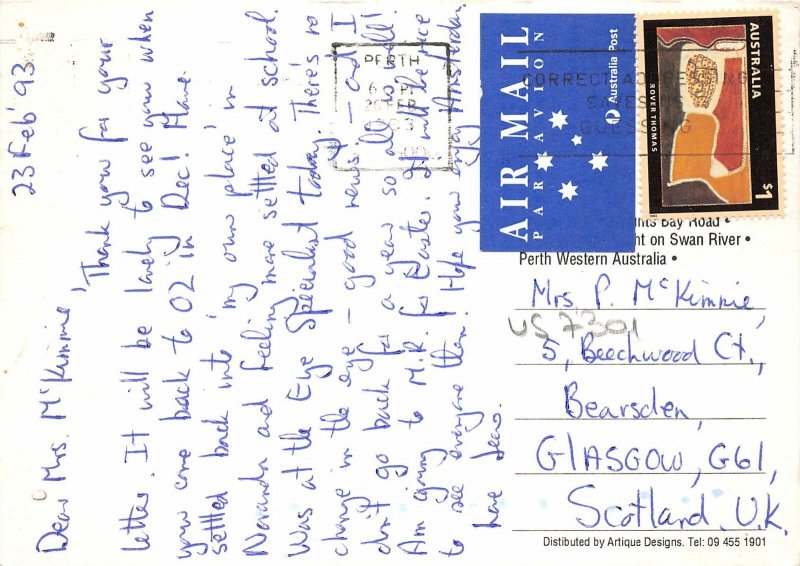 23 Feb '93
Dear Mrs. McKimmie,
Thank you for your
letter. It will be lovely to see you when
you come back to OZ in Dec! Have
settled back into 'my own place' in
Noranda and feeling more settled at school.
Was at the Eye Specialist today. There's no
change in the eye - good news! - and I
don't go back for a year so all is well!
Am going to M.R. for Easter. It will be nice
to see everyone then! Hope you enjoy Amsterdam.
AIR MAIL
PAR AVION
Australia Post
AUSTRALIA
ROVER THOMAS
$1
PERTH
CORRECT ADDRESSING
SAVES US
GUESSING
Bay Road •
ht on Swan River •
Perth Western Australia •
Mrs. P. McKimmie,
US 7301
5, Beechwood Ct.,
Bearsden,
GLASGOW, G61,
Scotland. U.K.
Distributed by Artique Designs. Tel: 09 455 1901